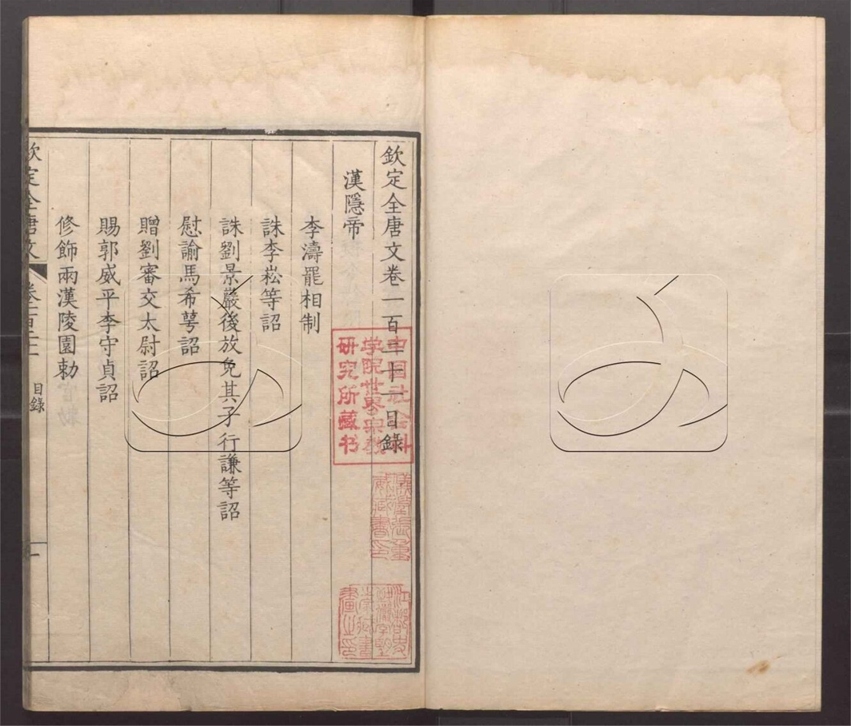 欽定全唐文卷一百二十一目錄
漢隱帝
李濤罷相制
誅李崧等詔
誅劉景巖後放免其子行謙等詔
慰諭馬希萼詔
贈劉審交太尉詔
賜郭威平李守貞詔
修飾兩漢陵園勅
欽定全唐文 卷一百二十一 目錄 一
中国社会科
学院世界宗教
研究所藏书